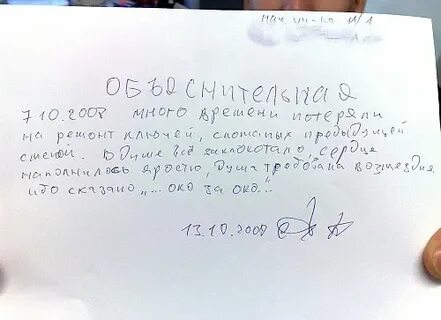 нач. уч-ка №1
ОБЪЯСНИТЕЛЬНАЯ
7.10.2008 много времени потеряли
на ремонт ключей, сломаных предыдущей
сменой. В душе всё заклокотало, сердце
наполнилось яростью, душа требовала возмездия
ибо сказано "... око за око..."
13.10.2008